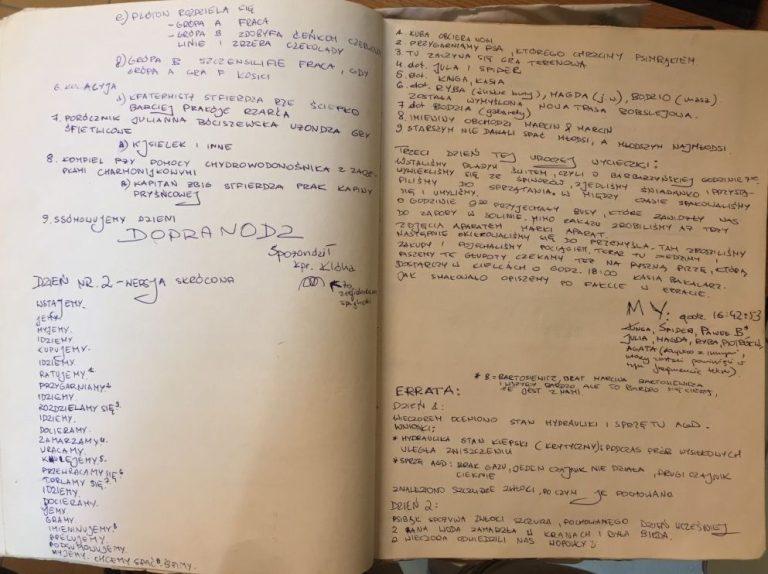 e) PLOTON ROZDZIELA SIĘ
- GRÓPA A FRACA
- GRÓPA B ZDOBYFA
LINIE I ZRZERA CZEKOLADY
f) GRÓPA B SZCZENSILFIE FRACA, GDY
GRÓPA A GRA F KOSICI
6. KOLACYJA
A) KFATERMISTY STFIERDZA RZE ŚCIEPKO
BARCIEJ PRAKOJE RZARŁA
7. PORÓCZNIK JULIANNA BOCISZEWSKA UZONDZA GRY
ŚFIETLICOWE
A) KJSIELEK I INNE
8. KOMPIEL PRZY POMOCY CHYDROWODONOŚNIKA Z ZACZE-
PKAMI CHARMONIJKOWYMI
A) KAPITAN ZBIG STFIERDZA PRAK KAPINY
PRYŚŃCOWEJ
9. SSÓMOLUJEMY DZIEMI
DOPRANODZ
Spożondził
kpr. Klócha
DZIEŃ NR. 2 - WERSJA SKRÓCONA
WSTAJEMY.
JEMY.
MYJEMY.
IDZIEMY
KUPUJEMY.
IDZIEMY.
RATUJEMY.¹
PRZYGARNIAMY.²
IDZIEMY.
ROZDZIELAMY SIĘ.³
IDZIEMY.
DOCIERAMY.
ZAMARZAMY.⁴
WRACAMY.
KULEJEMY.⁵
PRZEWRACAMY SIĘ.⁶
TURLAMY SIĘ.⁷
IDZIEMY.
DOCIERAMY.
JEMY.
GRAMY.
IMIENINUJEMY.⁸
APELUJEMY.
PODSUMOWUJEMY.
MYJEMY. CHCEMY SPAĆ.⁹ ŚPIMY.
1. KUBA OBCIERA NOGI
2. PRZYGARNIAMY PSA, KTÓREGO CHRZCIMY PSIMBĄKIEM
3. TU ZACZYNA SIĘ GRA TERENOWA
4. dot. JULA I SPIDER
5. dot. KINGA, KASIA
6. dot. RYBA MAGDA (j.w), BODZIO
ZOSTAŁA WYMYŚLONA NOWA TRASA BOBSLEJOWA.
7. dot BODZIA (gabaryty)
8. IMIENINY OBCHODZI MARCIN & MARCIN
9 STARSZYM NIE DAWALI SPAĆ MŁODSI, A MŁODSZYM NAJMŁODSI.
TRZECI DZIEŃ TEJ UROCZEJ WYCIECZKI:
WSTALIŚMY BLADYM ŚWITEM, CZYLI O BARBARZYŃSKIEJ GODZINIE 7ºº.
WYWLEKLIŚMY SIĘ ZE ŚPIWORÓW, ZJEDLIŚMY ŚNIADANKO I PRZYSTĄ-
PILIŚMY DO SPRZĄTANIA. W MIĘDZY CZASIE SPAKOWALIŚMY
SIĘ I UMYLIŚMY.
O GODZINIE 9ºº PRZYJECHAŁY BUSY, KTÓRE ZAWIOZŁY NAS
DO ZAPORY W SOLINIE. MIMO ZAKAZU ZROBILIŚMY AŻ TRZY
ZDJĘCIA APARATEM MARKI APARAT.
NASTĘPNIE SKIEROWALIŚMY SIĘ DO PRZEMYŚLA. TAM ZROBILIŚMY
ZAKUPY I POJECHALIŚMY POCIĄGIEM. TERAZ TU SIEDZIMY I
PISZEMY TE GŁUPOTY CZEKAMY TEŻ NA PYSZNĄ PIZZĘ, KTÓRĄ
DOSTARCZY W KIELCACH O GODZ. 18:00 KASIA BAKALARZ.
JAK SMAKOWAŁO OPISZEMY PO FAKCIE W ERRACIE.
MY: godz. 16:42:53
KINGA, SPIDER, PAWEŁ B*,
JULIA, MAGDA, RYBA, PIOTREK,
AGATA
* B = BARTOSIEWICZ, BRAT MARCINA BARTOSIEWICZA
ALE TO BARDZO SIĘ CIESZĘ,
ŻE JEST Z NAMI
ERRATA:
DZIEŃ 1:
WIECZOREM OCENIONO STAN HYDRAULIKI I SPRZĘTU AGD.
WNIOSKI:
* HYDRAULIKA STAN KIEPSKI (KRYTYCZNY); PODCZAS PRÓB WYSIŁKOWYCH
ULEGŁA ZNISZCZENIU
* SPRZĘ AGD: BRAK GAZU, JEDEN CZAJNIK NIE DZIAŁA, DRUGI CZAJNIK
CIEKNIE
ZNALEZIONO SZCZURZE ZWŁOKI, PO CZYM JE POCHOWANO
DZIEŃ 2:
PSIBĄK SPOŻYWA ZWŁOKI SZCZURA, POCHOWANEGO DZIEŃ WCZEŚNIEJ
Z RANA WODA ZAMARZŁA W KRANACH I BYŁA BIEDA.
WIECZORA ODWIEDZILI NAS WOPOWCY